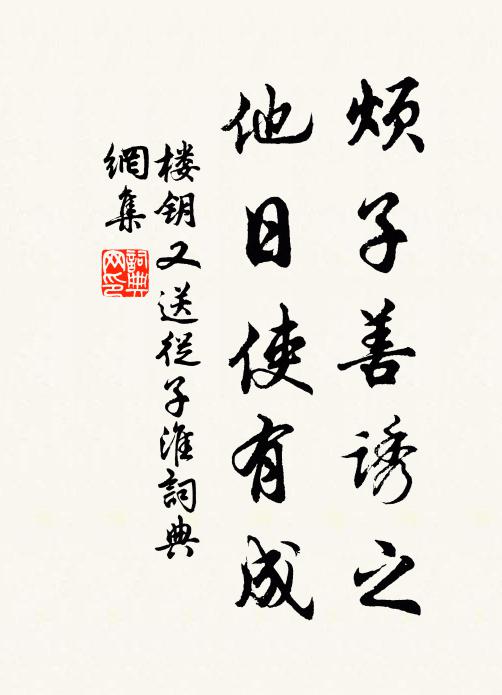 烦子善诱之
他日使有成
楼钥又送从子淮词典
網集
词典网印